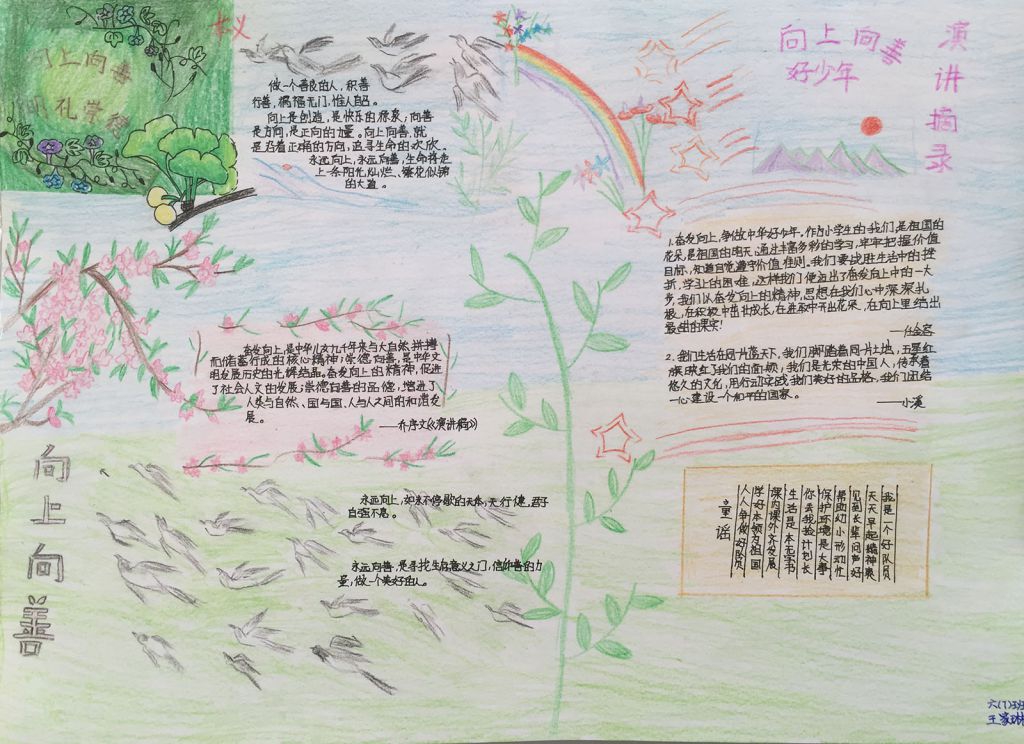 向上向善
明礼学德
做一个善良的人，积善
行善，祸福无门，惟人自召。
向上是创造，是快乐的源泉；向善
是方向，是正向的力量。向上向善，就
是沿着正确的方向，追寻生命的欢欣。
永远向上，永远向善，生命将走
上一条阳光灿烂、繁花似锦
的大道。
向上向善
好少年
演讲摘录
1.奋发向上，争做中华好少年。作为小学生的我们，是祖国的
花朵，是祖国的明天，通过丰富多彩的学习，牢牢把握价值
目标，知道自觉遵守价值准则。我们要战胜生活中的挫
折，学习上的困难，这样我们便迈出了奋发向上中的一大
步，我们从奋发向上的精神，思想在我们心中深深扎
根，在积极中茁壮成长，在进取中开出花朵，在向上里结出
最佳的果实！
2.我们生活在同一片蓝天下，我们脚踏着同一片土地，五星红
旗映红了我们的面颊；我们是光荣的中国人，传承着
悠久的文化，用行动实践我们美好的品格，我们团结
一心建设一个和平的国家。
——小溪
奋发向上，是中华儿女九千年来与大自然拼搏
而储蓄行成的核心精神；崇德向善，是中华文
明发展历史的光辉结晶。奋发向上的精神，促进
了社会人文的发展；崇德向善的品德，增进了
人类与自然、国与国、人与人之间的和谐发
展。
——乔序文《演讲稿》
永远向上，如永不停歇的天体，天行健，君子
自强不息。
永远向善，是寻找生命意义之门，信仰善的力
量，做一个美好的人。
向上向善
我是一个好队员
天天早起精神爽
见面长辈问声好
帮助幼小形动忙
保护环境是大事
你丢我捡计划长
生活是本无字书
课内课外齐发展
学好本领为祖国
人人争做好队员
童谣
六(1)班